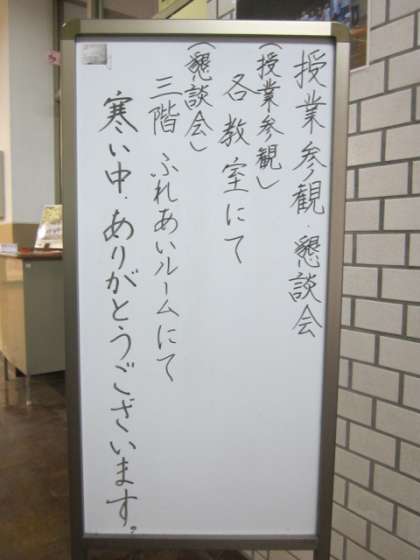 授業参観・懇談会
(授業参観)
各教室にて
(懇談会)
三階 ふれあいルームにて
寒い中、ありがとうございます。